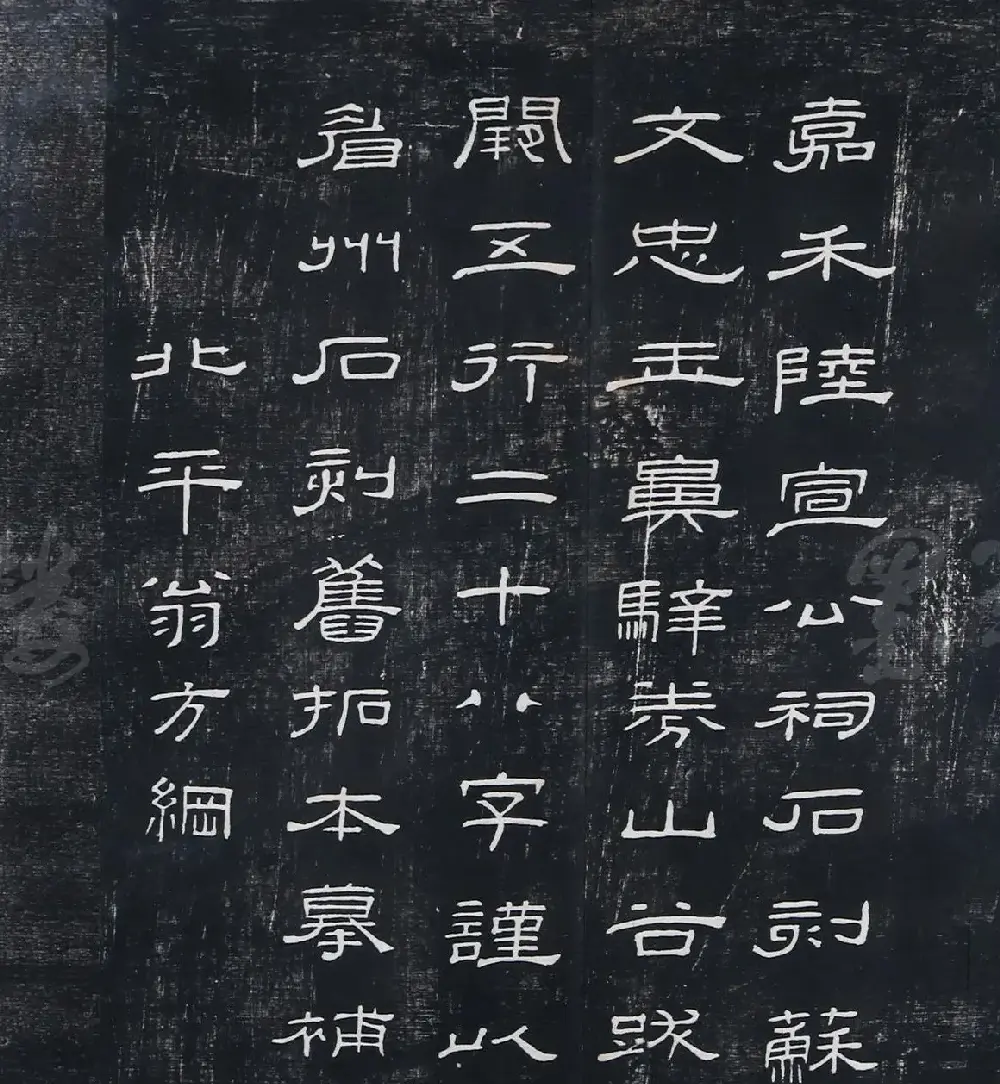 嘉禾陸宣公祠石刻蘇
文忠玉鼻騂券山谷跋
闕五行二十八字謹以
眉州石刻舊拓本摹補
北平翁方綱